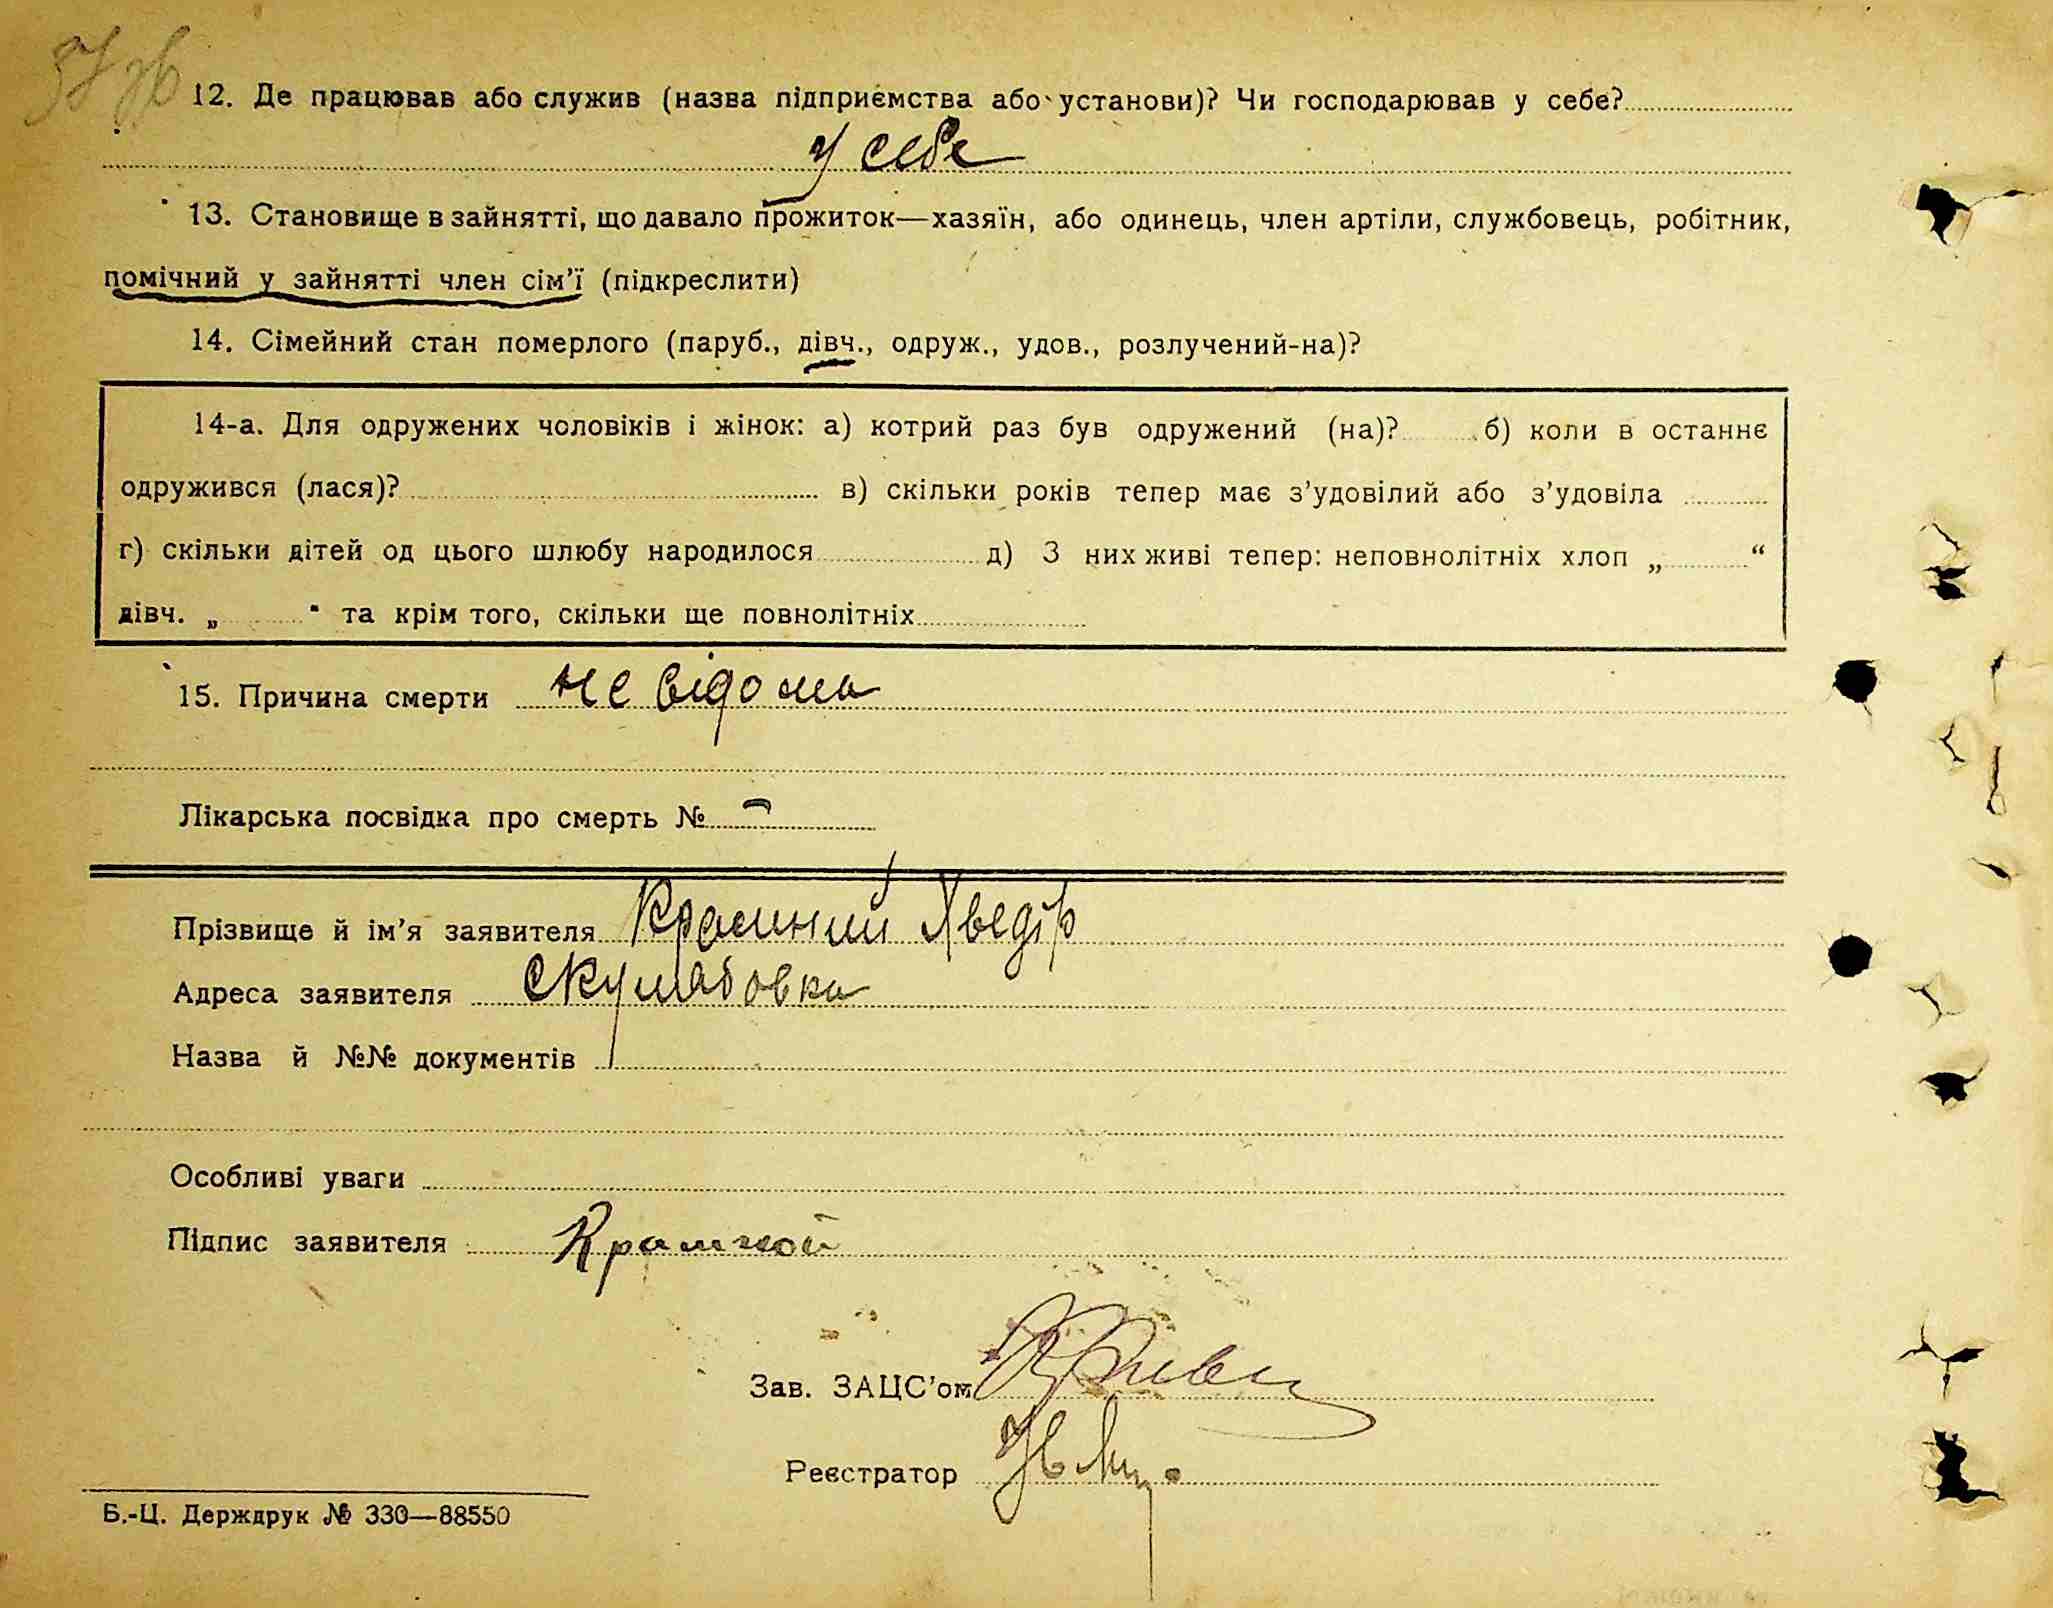 12. Де працював або служив (назва підприємства або установи)? Чи господарював у себе?
у себе
13. Становище в зайнятті, що давало прожиток—хазяїн, або одинець, член артіли, службовець, робітник,
помічний у зайнятті член сім'ї (підкреслити)
14. Сімейний стан померлого (паруб., дівч., одруж., удов., розлучений-на)?
14-а. Для одружених чоловіків і жінок: а) котрий раз був одружений (на)? б) коли в останнє
одружився (лася)? в) скільки років тепер має з'удовілий або з'удовіла
г) скільки дітей од цього шлюбу народилося д) З них живі тепер: неповнолітніх хлоп „ “
дівч. „ “ та крім того, скільки ще повнолітніх
15. Причина смерти не відома
Лікарська посвідка про смерть № —
Прізвище й ім'я заявителя Хведір
Адреса заявителя
Назва й №№ документів
Особливі уваги
Підпис заявителя
Зав. ЗАЦС'ом
Реєстратор
Б.-Ц. Держдрук № 330—88550